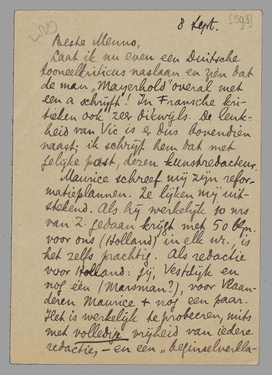 8 Sept. [593]
Beste Menno,
Laat ik nu even een Duitsche
tooneelkriticus naslaan en zien dat
de man „Mayerhold" overal met
een a schrijft! In Fransche kri-
tieken ook zeer dikwijls. De leuk-
heid van Vic is er dus bovendien
naast; ik schrijf hem dat met
gelijke post, dezen kunstredacteur.
Maurice schreef mij zijn refor-
matieplannen. Ze lijken mij uit-
stekend. Als hij werkelijk 10 nrs
van 2. gedaan krijgt met 50 blzn.
voor ons (Holland) in elk nr., is
het zelfs prachtig. Als redactie
voor Holland: jij, Vestdijk en
nog één (Marsman?), voor Vlaan-
deren Maurice + nog een paar.
Het is werkelijk te probeeren, mits
met volledige vrijheid van iedere
redactie, – en een „beginselverkla-